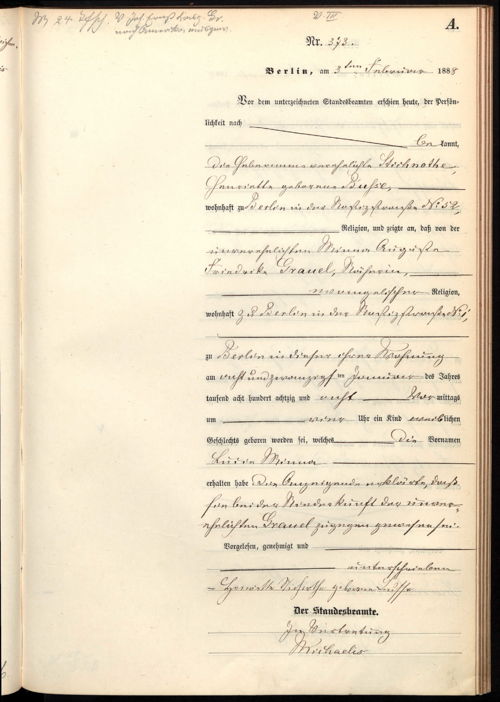 A.
Nr. 373.
Berlin, am 3ten Februar 1888
Vor dem unterzeichneten Standesbeamten erschien heute, der Persön-
lichkeit nach
be kannt,
die Hebamme verehelichte
Henriette geborene Busse,
wohnhaft zu Berlin in der No 52,
Religion, und zeigte an, daß von der
unverehelichten Minna Auguste
Friederike Grauel, Näherin,
evangelischer Religion,
wohnhaft zu Berlin in der No 1,
zu Berlin in dieser ihrer Wohnung
am acht und zwanzigsten Januar des Jahres
tausend acht hundert achtzig und acht Vor mittags
um vier Uhr ein Kind weiblichen
Geschlechts geboren worden sei, welches die Vornamen
Lucie Minna
erhalten habe Die Anzeigende erklärte, daß
sie bei der Niederkunft der unver-
ehelichten Grauel zugegen gewesen sei.
Vorgelesen, genehmigt und
unterschrieben
Henriette geborene Busse
Der Standesbeamte.
In Vertretung
Michaelis